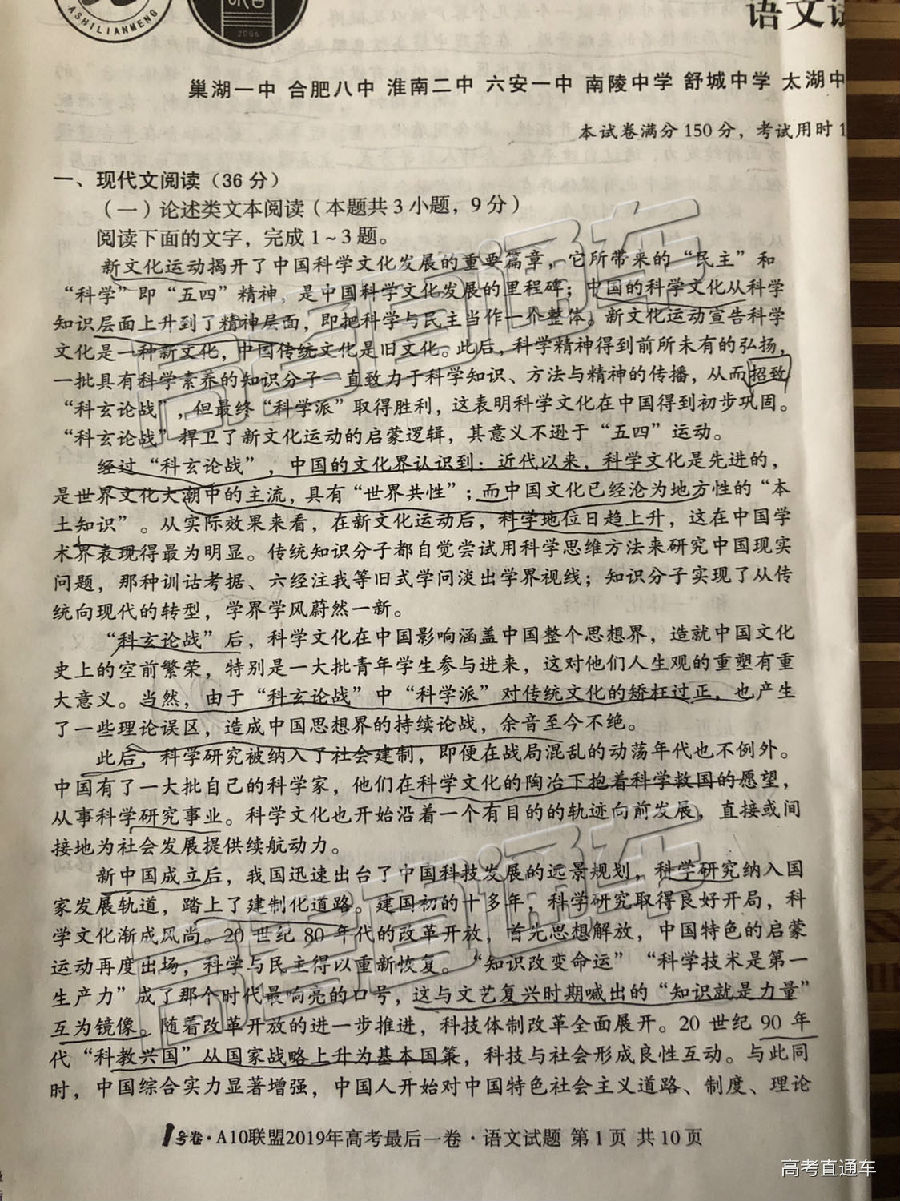 ASHILIANMENG
2006
语文试
巢湖一中 合肥八中 淮南二中 六安一中 南陵中学 舒城中学 太湖中
本试卷满分150分，考试用时1
一、现代文阅读（36分）
（一）论述类文本阅读（本题共3小题，9分）
阅读下面的文字，完成1~3题。
新文化运动揭开了中国科学文化发展的重要篇章，它所带来的“民主”和
“科学”即“五四”精神，是中国科学文化发展的里程碑；中国的科学文化从科学
知识层面上升到了精神层面，即把科学与民主当作一个整体。新文化运动宣告科学
文化是一种新文化，中国传统文化是旧文化。此后，科学精神得到前所未有的弘扬，
一批具有科学素养的知识分子一直致力于科学知识、方法与精神的传播，从而招致
“科玄论战”，但最终“科学派”取得胜利，这表明科学文化在中国得到初步巩固。
“科玄论战”捍卫了新文化运动的启蒙逻辑，其意义不逊于“五四”运动。
经过“科玄论战”，中国的文化界认识到：近代以来，科学文化是先进的，
是世界文化大潮中的主流，具有“世界共性”；而中国文化已经沦为地方性的“本
土知识”。从实际效果来看，在新文化运动后，科学地位日趋上升，这在中国学
术界表现得最为明显。传统知识分子都自觉尝试用科学思维方法来研究中国现实
问题，那种训诂考据、六经注我等旧式学问淡出学界视线；知识分子实现了从传
统向现代的转型，学界学风蔚然一新。
“科玄论战”后，科学文化在中国影响涵盖中国整个思想界，造就中国文化
史上的空前繁荣，特别是一大批青年学生参与进来，这对他们人生观的重塑有重
大意义。当然，由于“科玄论战”中“科学派”对传统文化的矫枉过正，也产生
了一些理论误区，造成中国思想界的持续论战，余音至今不绝。
此后，科学研究被纳入了社会建制，即便在战局混乱的动荡年代也不例外。
中国有了一大批自己的科学家，他们在科学文化的陶冶下抱着科学救国的愿望，
从事科学研究事业。科学文化也开始沿着一个有目的的轨迹向前发展，直接或间
接地为社会发展提供续航动力。
新中国成立后，我国迅速出台了中国科技发展的远景规划，科学研究纳入国
家发展轨道，踏上了建制化道路。建国初的十多年，科学研究取得良好开局，科
学文化渐成风尚。20世纪80年代的改革开放，首先思想解放，中国特色的启蒙
运动再度出场，科学与民主得以重新恢复。“知识改变命运”“科学技术是第一
生产力”成了那个时代最响亮的口号，这与文艺复兴时期喊出的“知识就是力量”
互为镜像。随着改革开放的进一步推进，科技体制改革全面展开。20世纪90年
代“科教兴国”从国家战略上升为基本国策，科技与社会形成良性互动。与此同
时，中国综合实力显著增强，中国人开始对中国特色社会主义道路、制度、理论
1号卷·A10联盟2019年高考最后一卷·语文试题 第1页 共10页
高考直通车